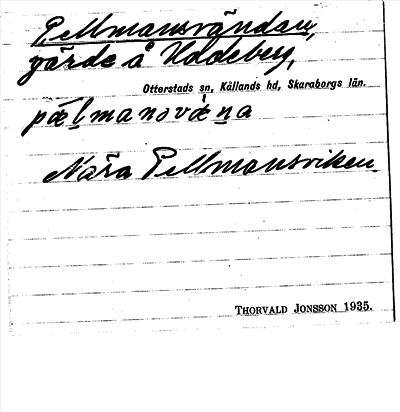 Pellmansvändan,
gärde å Uddeberg,
Otterstads sn, Kållands hd, Skaraborgs län.
Nära Pellmansviken.
THORVALD JONSSON 1935.